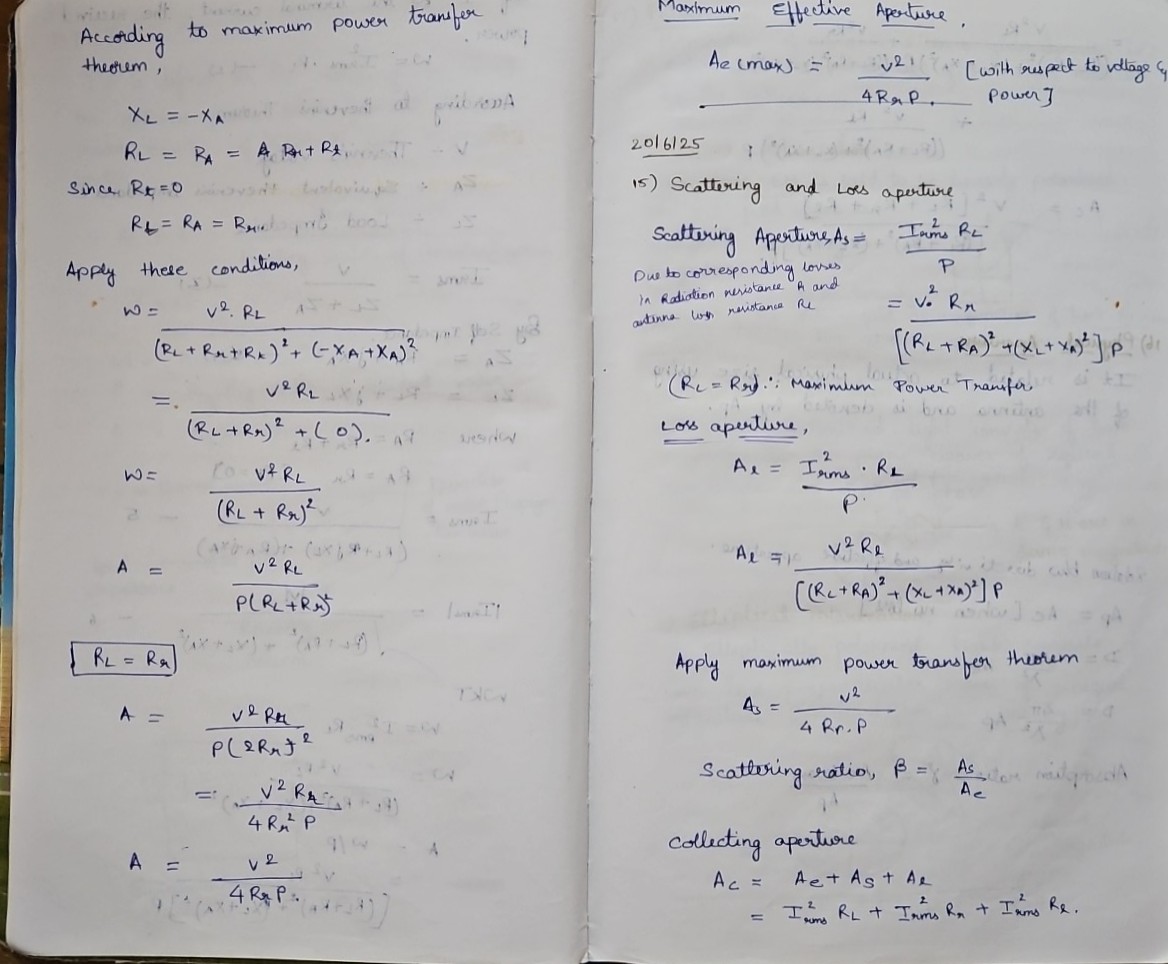 According to maximum power transfer
theorem,
X_L = -X_A
R_L = R_A = R_r + R_l
Since R_l = 0
R_L = R_A = R_r
Apply these conditions,
W = V². R_L / (R_L + R_r + R_l)² + (-X_A + X_A)²
= V² R_L / (R_L + R_r)² + (0).
W = V² R_L / (R_L + R_r)²
A = V² R_L / P(R_L + R_r)²
R_L = R_r
A = V² R_r / P(2R_r)²
= V² R_r / 4 R_r² P
A = V² / 4 R_r P.
Maximum Effective Aperture.
Ae (max) = V² / 4 R_r P. [with respect to voltage &
power]
20/6/25
15) Scattering and Loss aperture
Scattering Aperture, As = I²rms R_L / P
Due to corresponding losses
in Radiation resistance R and
antenna loss resistance R_l
= V² R_r / [(R_L + R_A)² + (X_L + X_A)²] P
(R_L = R_r) ∴ Maximum Power Transfer.
Loss aperture,
A_l = I²rms . R_l / P
A_l = V² R_l / [(R_L + R_A)² + (X_L + X_A)²] P
Apply maximum power transfer theorem
As = V² / 4 R_r . P
Scattering ratio, β = As / Ae
Collecting aperture
Ac = Ae + As + A_l
= I²rms R_L + I²rms R_r + I²rms R_l.